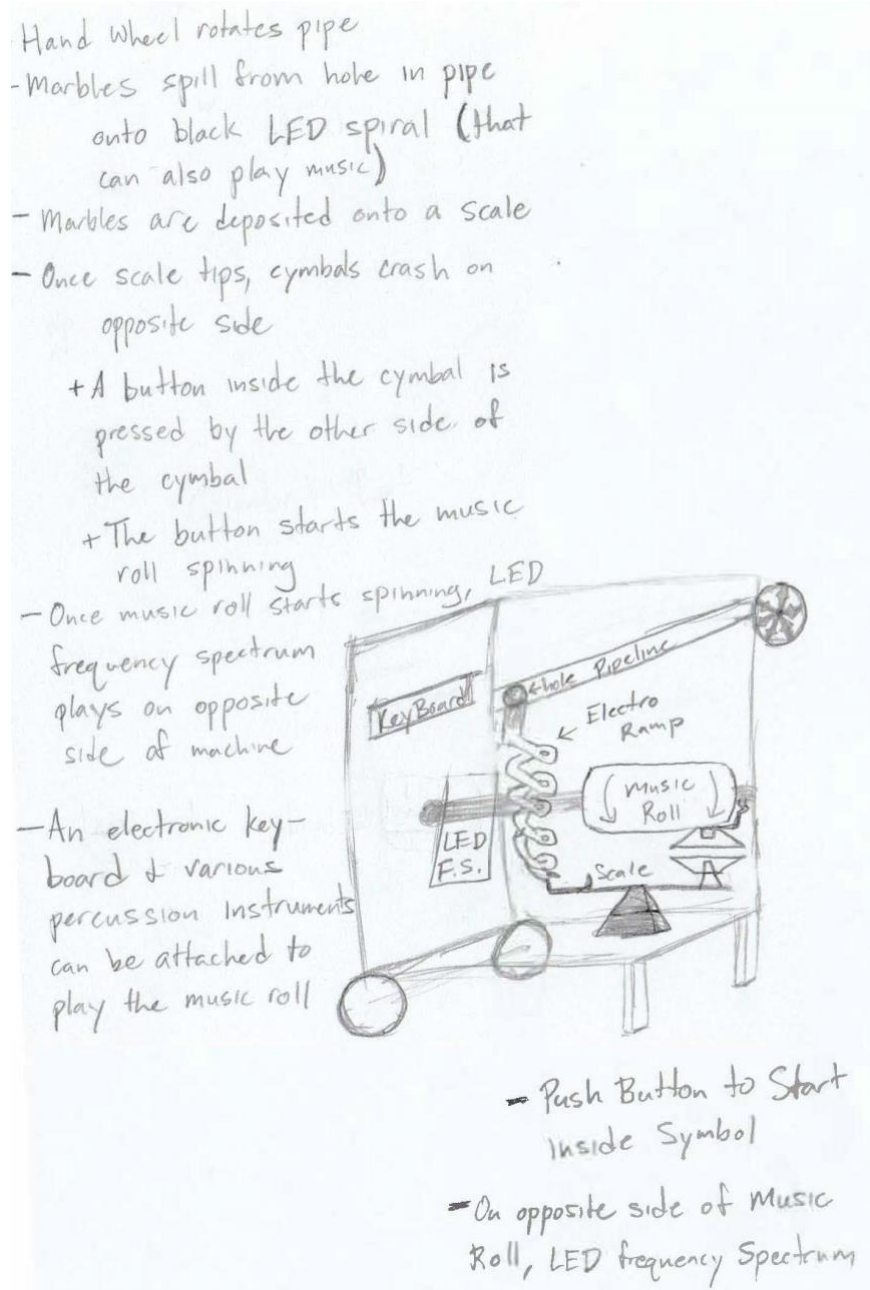 Hand wheel rotates pipe
- Marbles spill from hole in pipe
onto black LED spiral (that
can also play music)
- Marbles are deposited onto a scale
- Once scale tips, cymbals crash on
opposite side
+ A button inside the cymbal is
pressed by the other side of
the cymbal
+ The button starts the music
roll spinning
- Once music roll starts spinning, LED
frequency spectrum
plays on opposite
side of machine
- An electronic key-
board & various
percussion instruments
can be attached to
play the music roll
KeyBoard
hole Pipeline
Electro
Ramp
Music
Roll
LED
F.S.
Scale
- Push Button to Start
Inside Symbol
- On opposite side of Music
Roll, LED frequency Spectrum